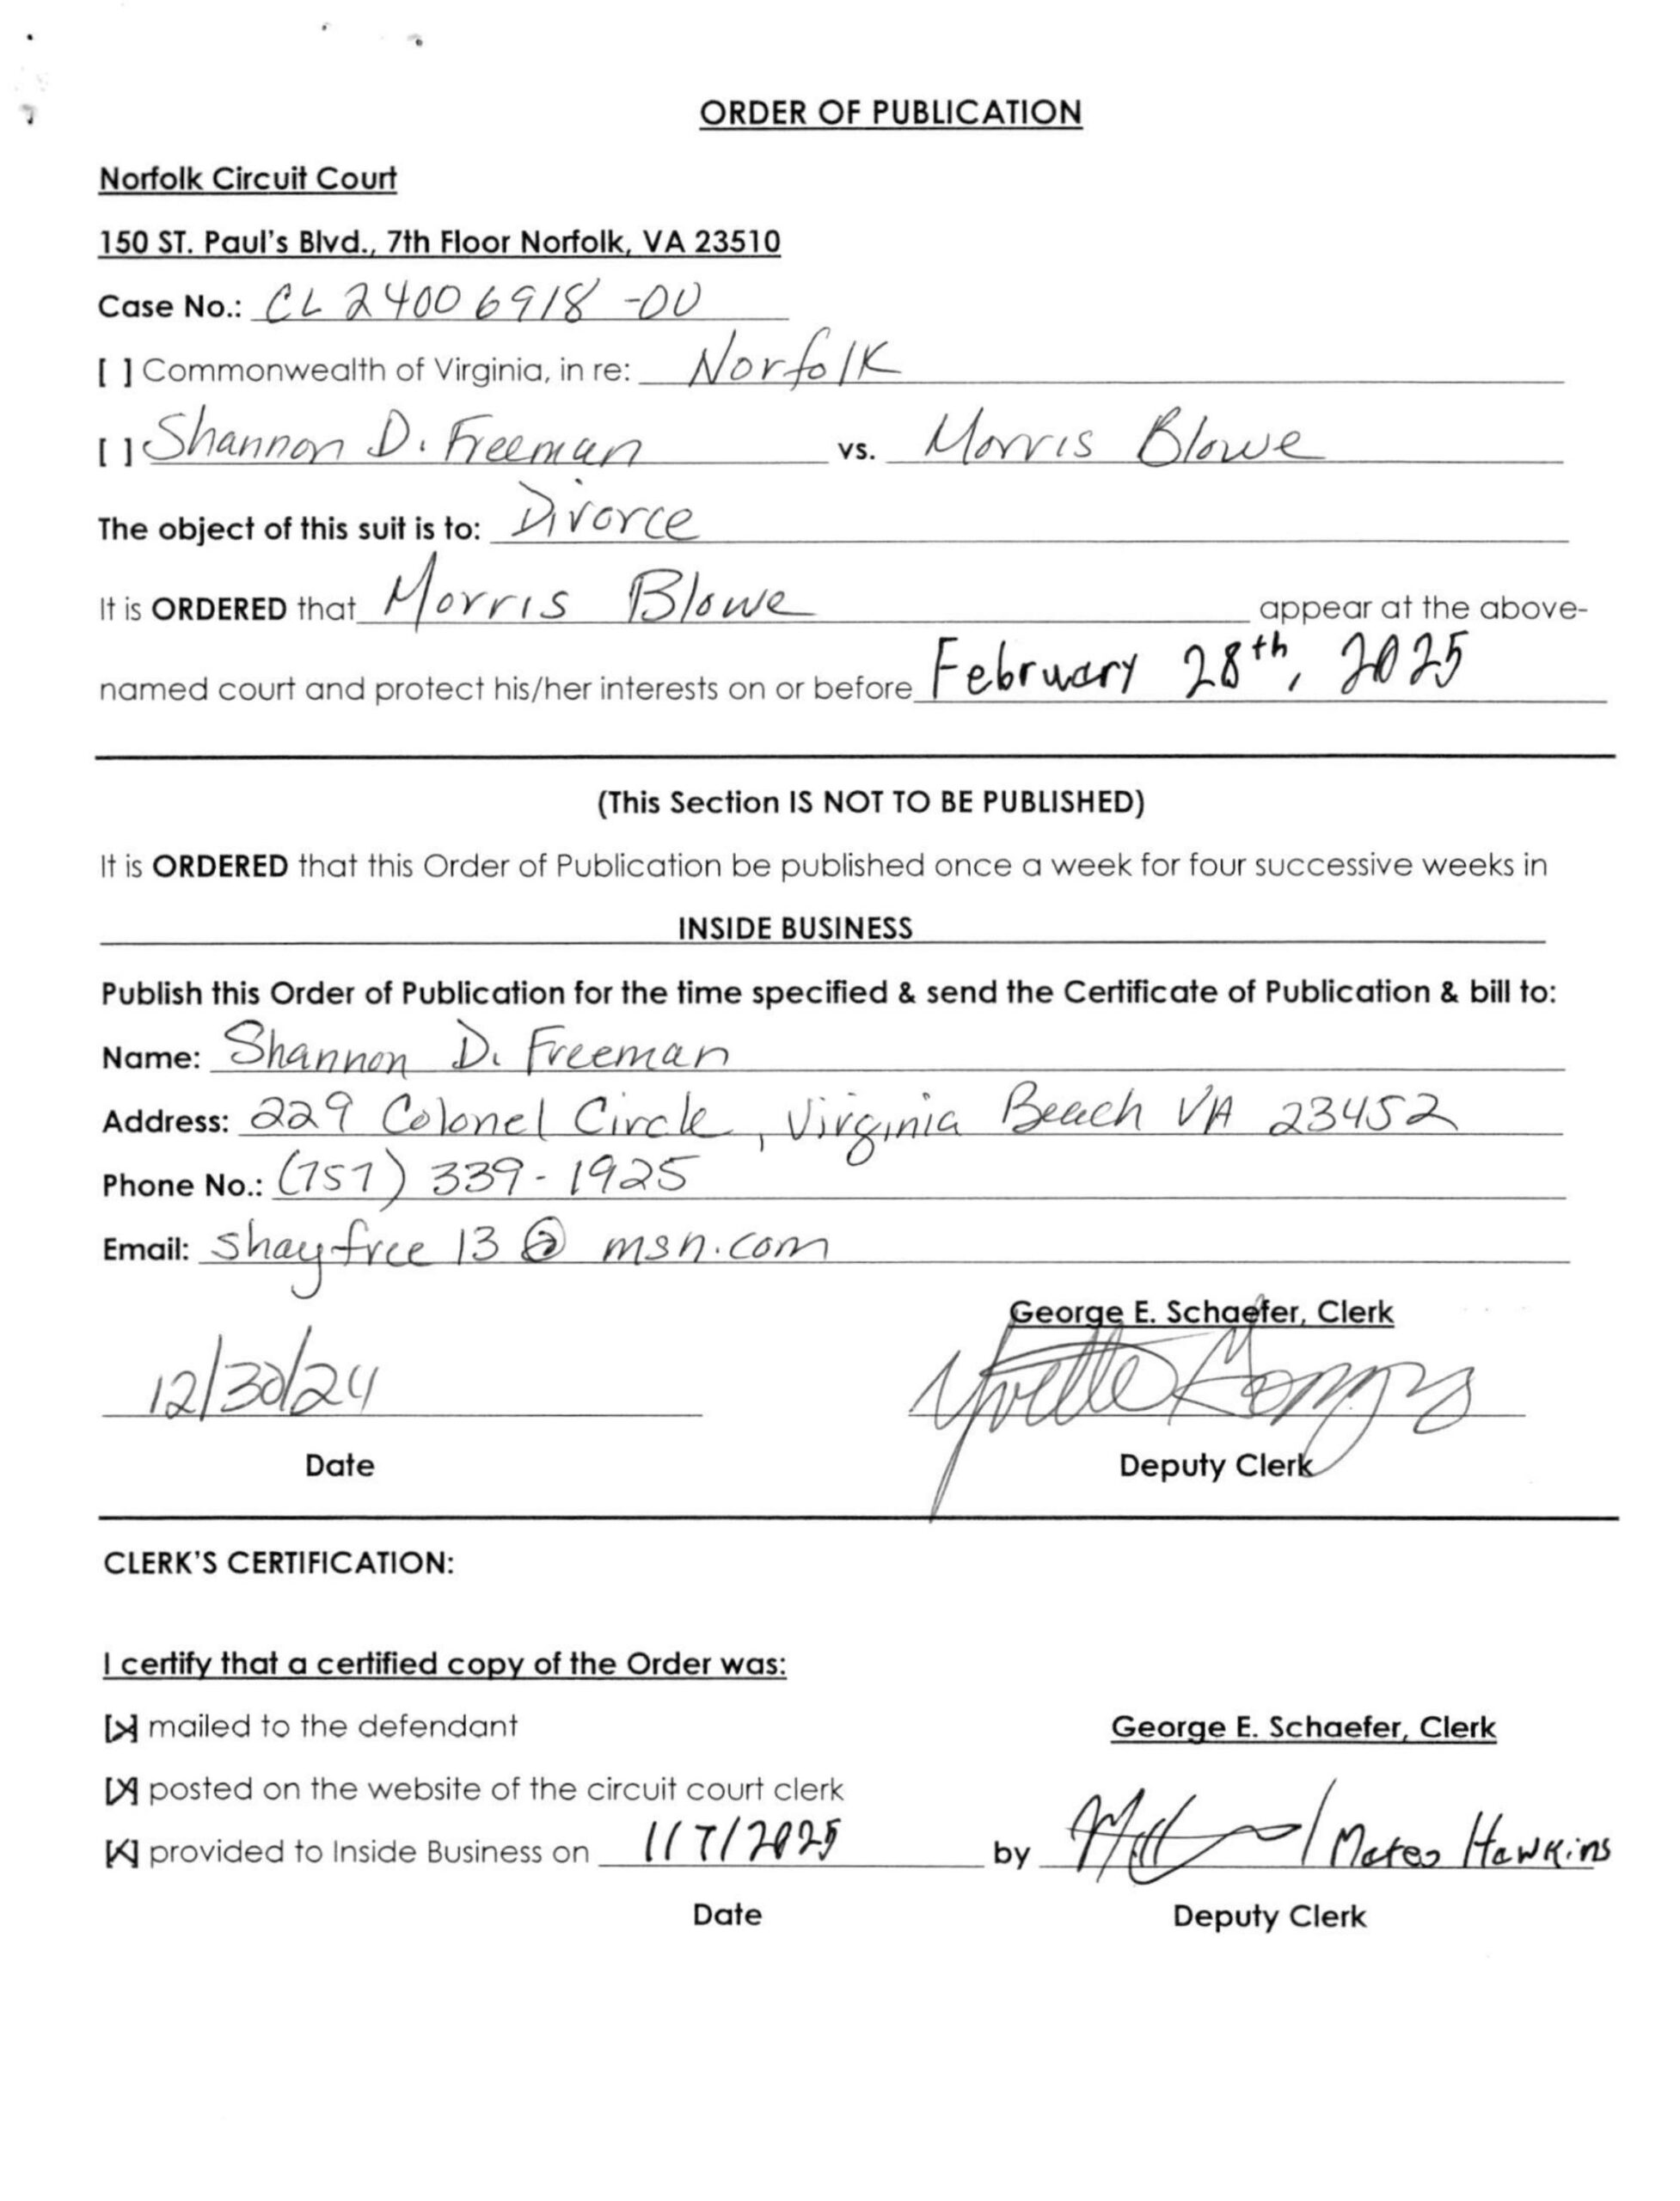 ORDER OF PUBLICATION
Norfolk Circuit Court
150 ST. Paul's Blvd., 7th Floor Norfolk, VA 23510
Case No.: CL 24006918-00
[ ] Commonwealth of Virginia, in re: Norfolk
[ ] Shannon D. Freeman vs. Morris Blowe
The object of this suit is to: Divorce
It is ORDERED that Morris Blowe appear at the above-
named court and protect his/her interests on or before February 28th, 2025
(This Section IS NOT TO BE PUBLISHED)
It is ORDERED that this Order of Publication be published once a week for four successive weeks in
INSIDE BUSINESS
Publish this Order of Publication for the time specified & send the Certificate of Publication & bill to:
Name: Shannon D. Freeman
Address: 229 Colonel Circle, Virginia Beach VA 23452
Phone No.: (757) 339-1925
Email: shayfree13@msn.com
George E. Schaefer, Clerk
12/30/24 Yvette
Date Deputy Clerk
CLERK'S CERTIFICATION:
I certify that a certified copy of the Order was:
[x] mailed to the defendant George E. Schaefer, Clerk
[x] posted on the website of the circuit court clerk
[x] provided to Inside Business on 1/7/2025 by / Mateo Hawkins
Date Deputy Clerk